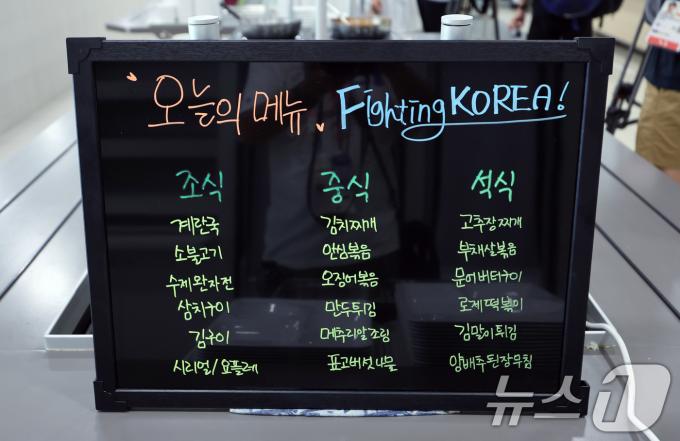 오늘의 메뉴 Fighting KOREA!
조식 중식 석식
계란국 김치찌개 고추장찌개
소불고기 안심볶음 부채살볶음
수제완자전 오징어볶음 문어버터구이
삼치구이 만두튀김 로제떡볶이
김구이 메추리알조림 김말이튀김
시리얼/요플레 표고버섯나물 양배추된장무침
뉴스1